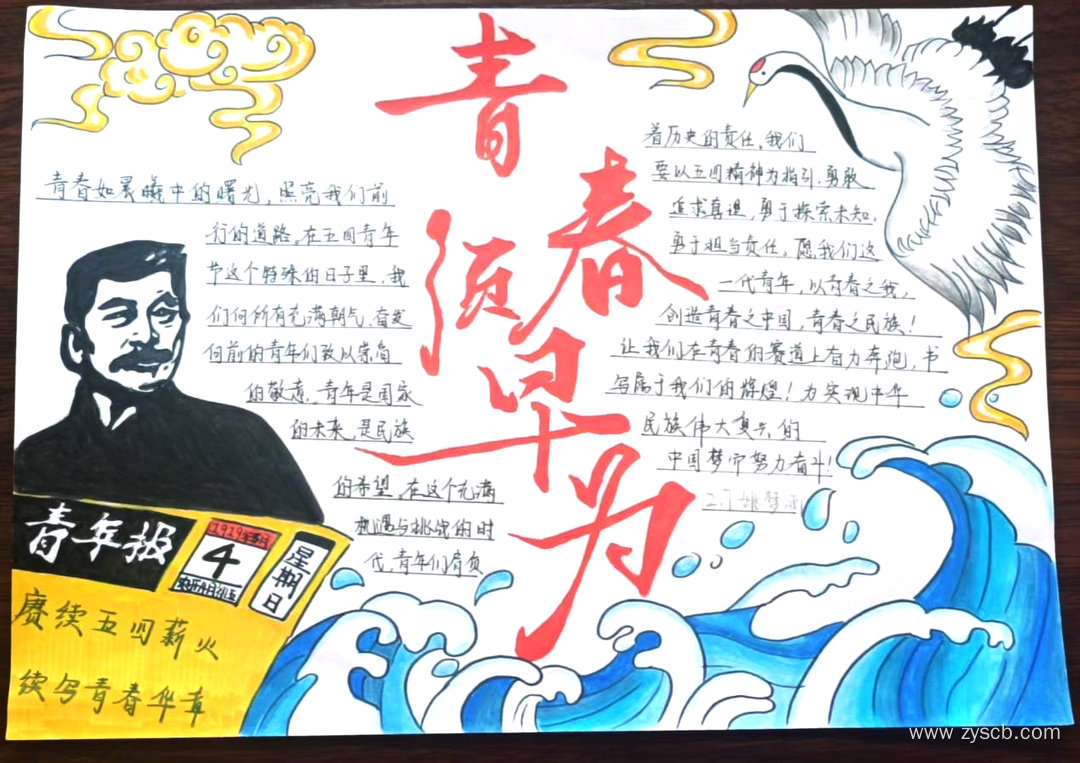 青春须早为
青春如晨曦中的曙光，照亮我们前
行的道路。在五四青年
节这个特殊的日子里，我
们向所有充满朝气、奋发
向前的青年们致以崇高
的敬意。青年是国家
的未来，是民族
的希望。在这个充满
机遇与挑战的时
代，青年们肩负
着历史的责任，我们
要以五四精神为指引，勇敢
追求真理，勇于探索未知，
勇于担当责任，愿我们这
一代青年，以青春之我，
创造青春之中国，青春之民族！
让我们在青春的赛道上奋力奔跑，书
写属于我们的辉煌！为实现中华
民族伟大复兴的
中国梦而努力奋斗！
2.7 姚梦
青年报
1919年5月
4
星期日
赓续五四薪火
续写青春华章
www.zyscb.com